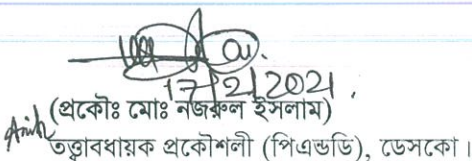 17/2/2021.
(প্রকৌঃ মোঃ নজরুল ইসলাম)
তত্ত্বাবধায়ক প্রকৌশলী (পিএন্ডডি), ডেসকো।